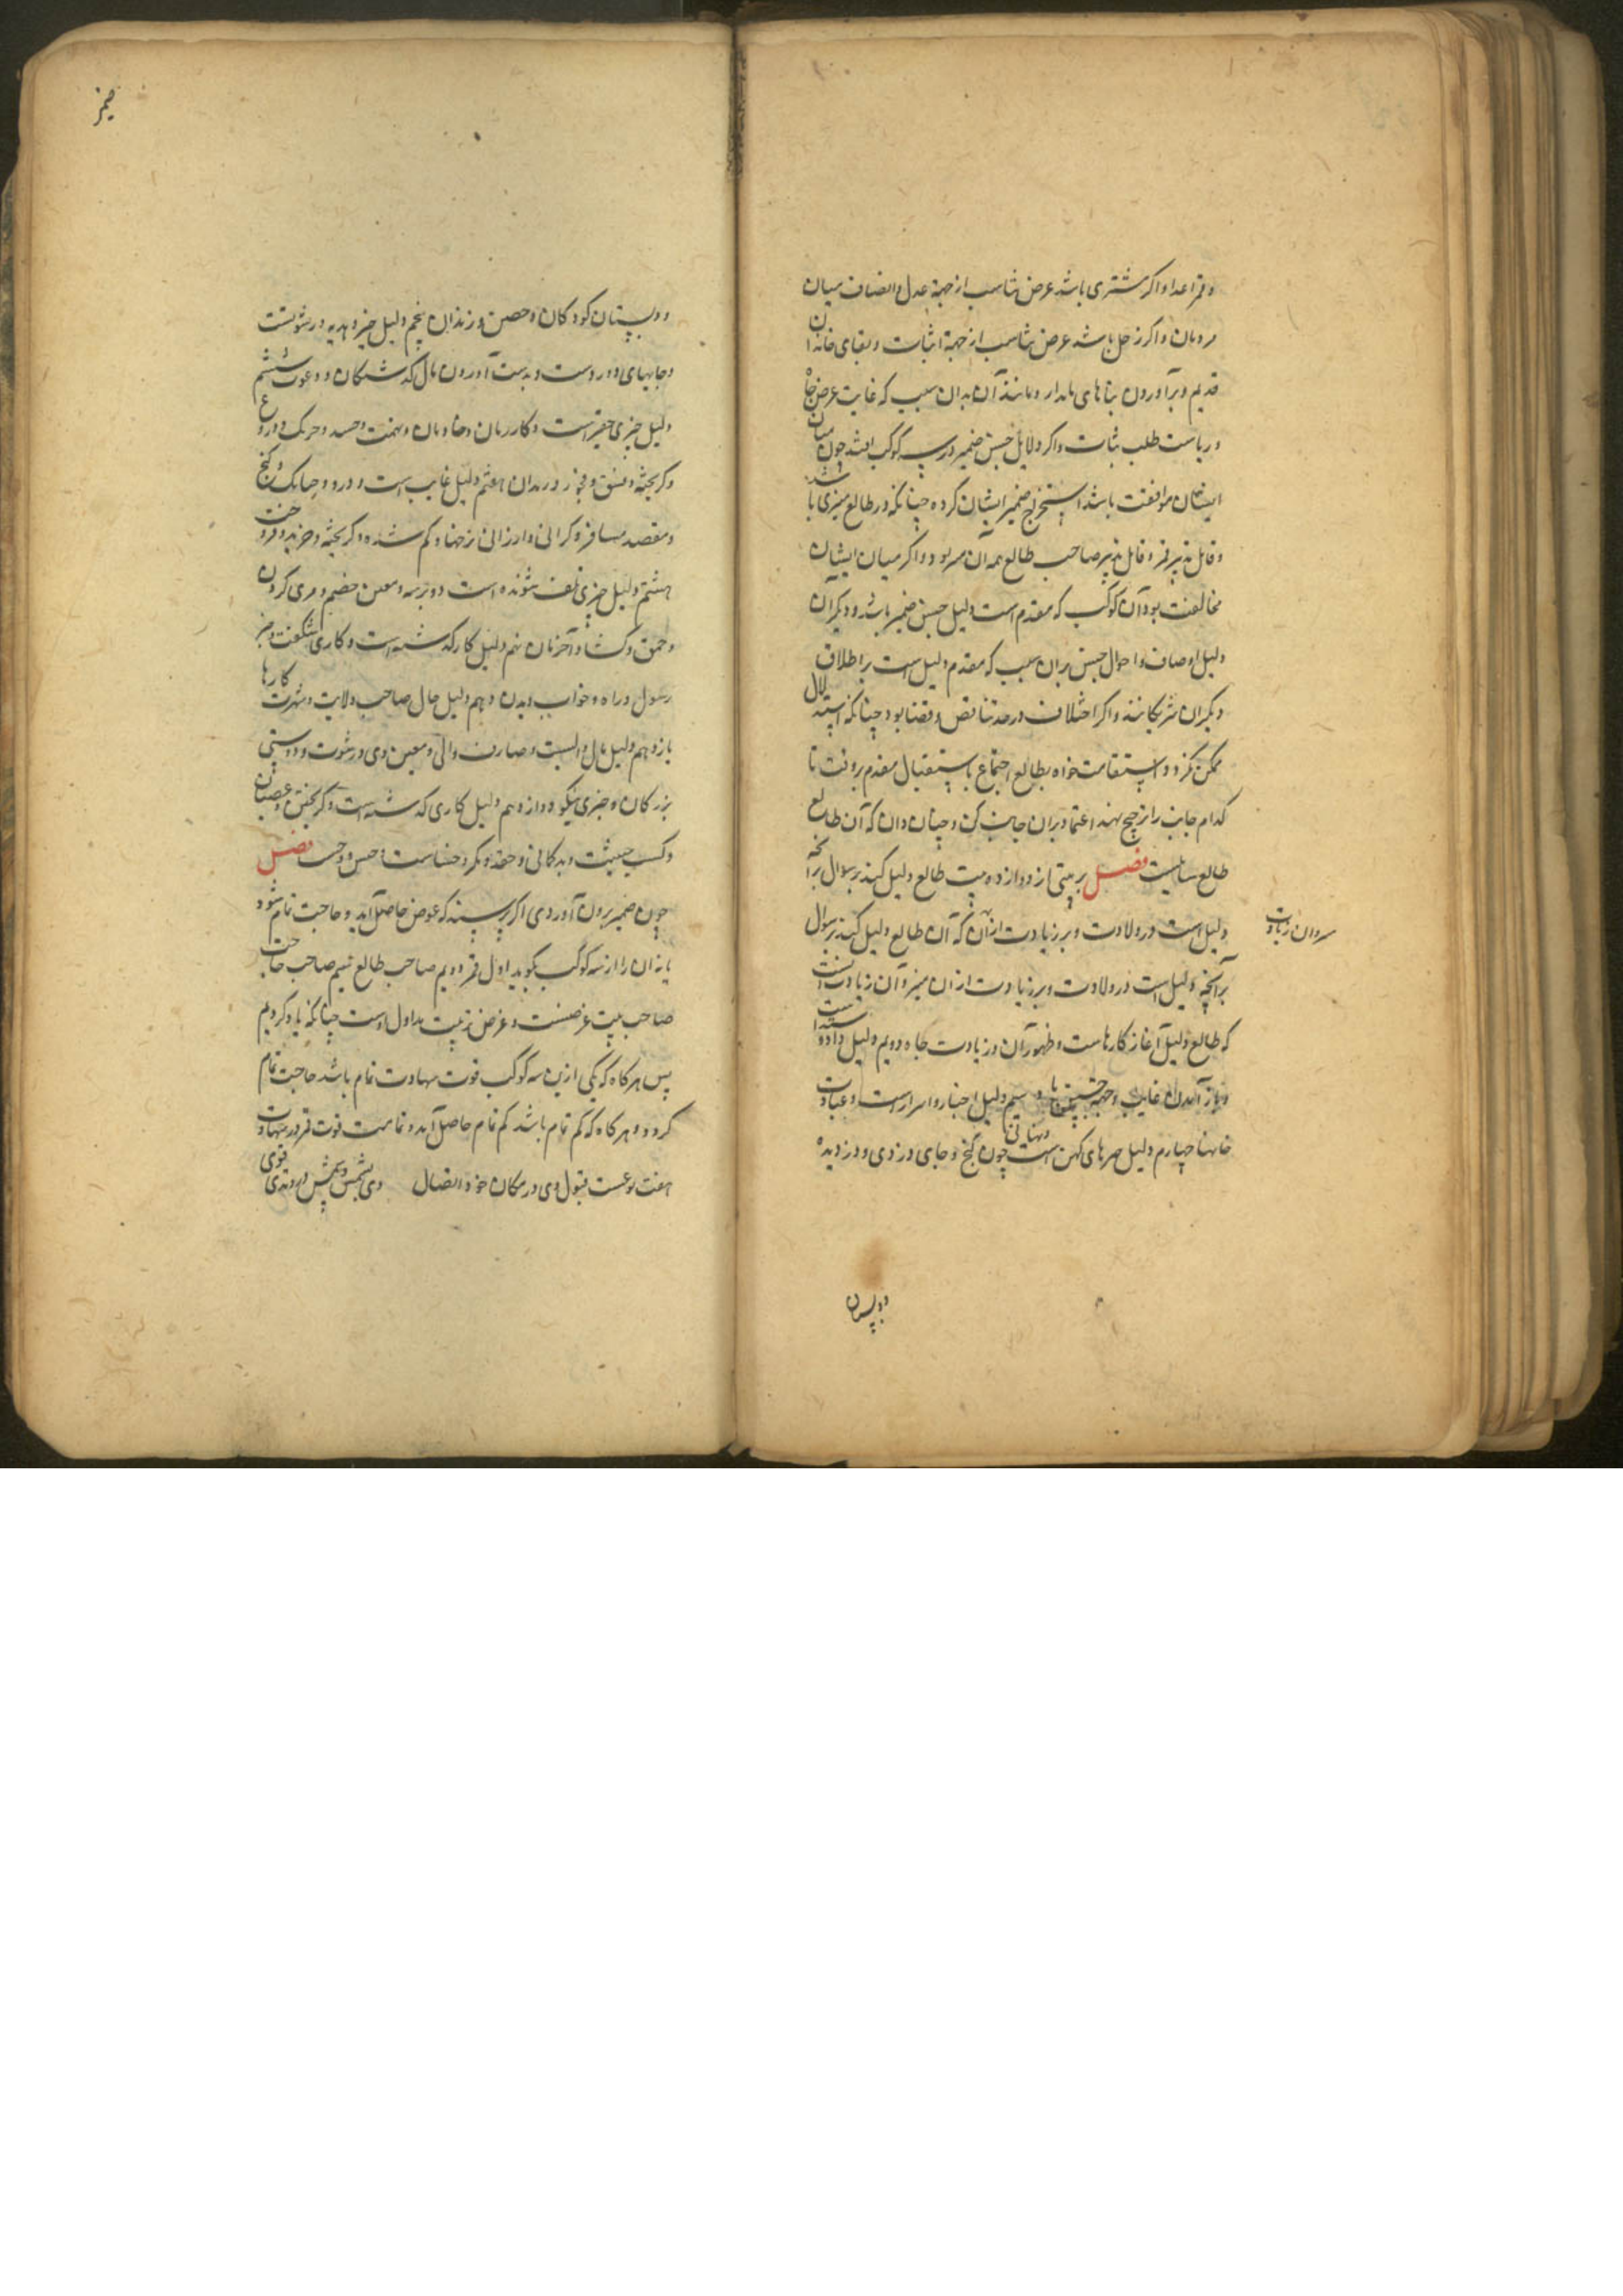 و قهر اعدا و اگر مشتری باشد عرض مناسب از جهة عدل و انصاف میان
مردمان و اگر زحل باشد عرض مناسب از جهة اثبات و بقای خاندان
قدیم و برآوردن بناهای نامدار و مانند آن بدان سبب که غایت عرض جاه
و ریاست طلب ثبات و اگر دلایل جنس ضمیر در سه کوکب افتد چون میان
ایشان موافقت باشد استخراج ضمیر ایشان کرده چنانکه در طالع میزی باشد
و قابل تدبیر قمر و قابل تدبیر صاحب طالع همه آن مربود و اگر میان ایشان
مخالفت بود آن کوکب که مقدم است دلیل جنس ضمیر باشد و دیگر آن
دلیل اوصاف و احوال جنس بدان سبب که مقدم دلیل است بر اطلاق
دیگران شریکانند و اگر اختلاف در حد تناقض و قضا بود چنانکه استدلال
ممکن نگردد استقامت خواه بطالع اجتماع یا استقبال مقدم بر وقت تا
کدام جانب را ترجیح نهند اعتماد بران جانب کن و چنان دان که آن طالع
طالع سالیست فصل بر بیتی از دوازده بیت طالع دلیل کیند بر سوال برآنچه
دلیل است در ولادت و بر زیادت ازان که آن طالع دلیل کیند بر سوال
سر و ان زیادت
برآنچه دلیل است در ولادت و بر زیادت ازان میز و آن زیادت آنست
که طالع دلیل آغاز کارهاست و ظهور آن و زیادت جاه دویم دلیل داد و ستد است
و باز آمدن غایب و جهة سیم دلیل اخبار و اسرار است و عبادت
خانها چهارم دلیل چیزهای کهن است چون گنج و جای دزدی و دزدیده
دبیرستان
ضمیر
و دبیرستان کودکان و حصن و زندان پنجم دلیل خبر و هدیه و رشوتست
و جایهای دوردست و بدست آوردن مال گذشتگان و دعوت ششم
دلیل چیزی حقیر است و کار زنان و خادمان و تهمت و حسد و حریک و دروغ
و گریخته و فسق و فجور و زندان هفتم دلیل غایب است و دزد و جایگاه گنج
و مقصد مسافر و گرانی و ارزانی نرخها و گم شده و گریخته و خرید و فروخت
هشتم دلیل چیزی تلف شونده است و دوزسه و معین خصم و مری کردن
و حمق و کشاد آخر زمان نهم دلیل کار گذشته است و کاری شگفت و خبر
رسول و راه و خواب دیدن دهم دلیل حال صاحب ولایت و شهرت کارها
یازدهم دلیل مال و السبت و صارف والی و معین وی و رشوت و دوستی
بزرگان و چیزی نیکو دوازدهم دلیل کاری گذشته است و گریختن و عصیان
و کسب خبیث و بدگمانی و حقد و مکر و خساست و حبس و وحشت فصل
چون ضمیر برون آوردی اگر پرسند که عرض حاصل آید و حاجت تمام شود
یا نه آن را از سه کوکب بگوید اول قمر دویم صاحب طالع سیم صاحب حاجت
صاحب بیت غرضست و غرض زبیت بداول اوست چنانکه یاد کردیم
پس هرگاه که یکی ازین سه کوکب قوت سهادت تمام باشد حاجت تمام
گردد و هرگاه که کم تمام باشد کم تمام حاصل آید و تمامست قوت قمر در سهادت
هفت نوعست قبول وی در مکان خود اتصال وی بشمس و شش در وتدی قوی